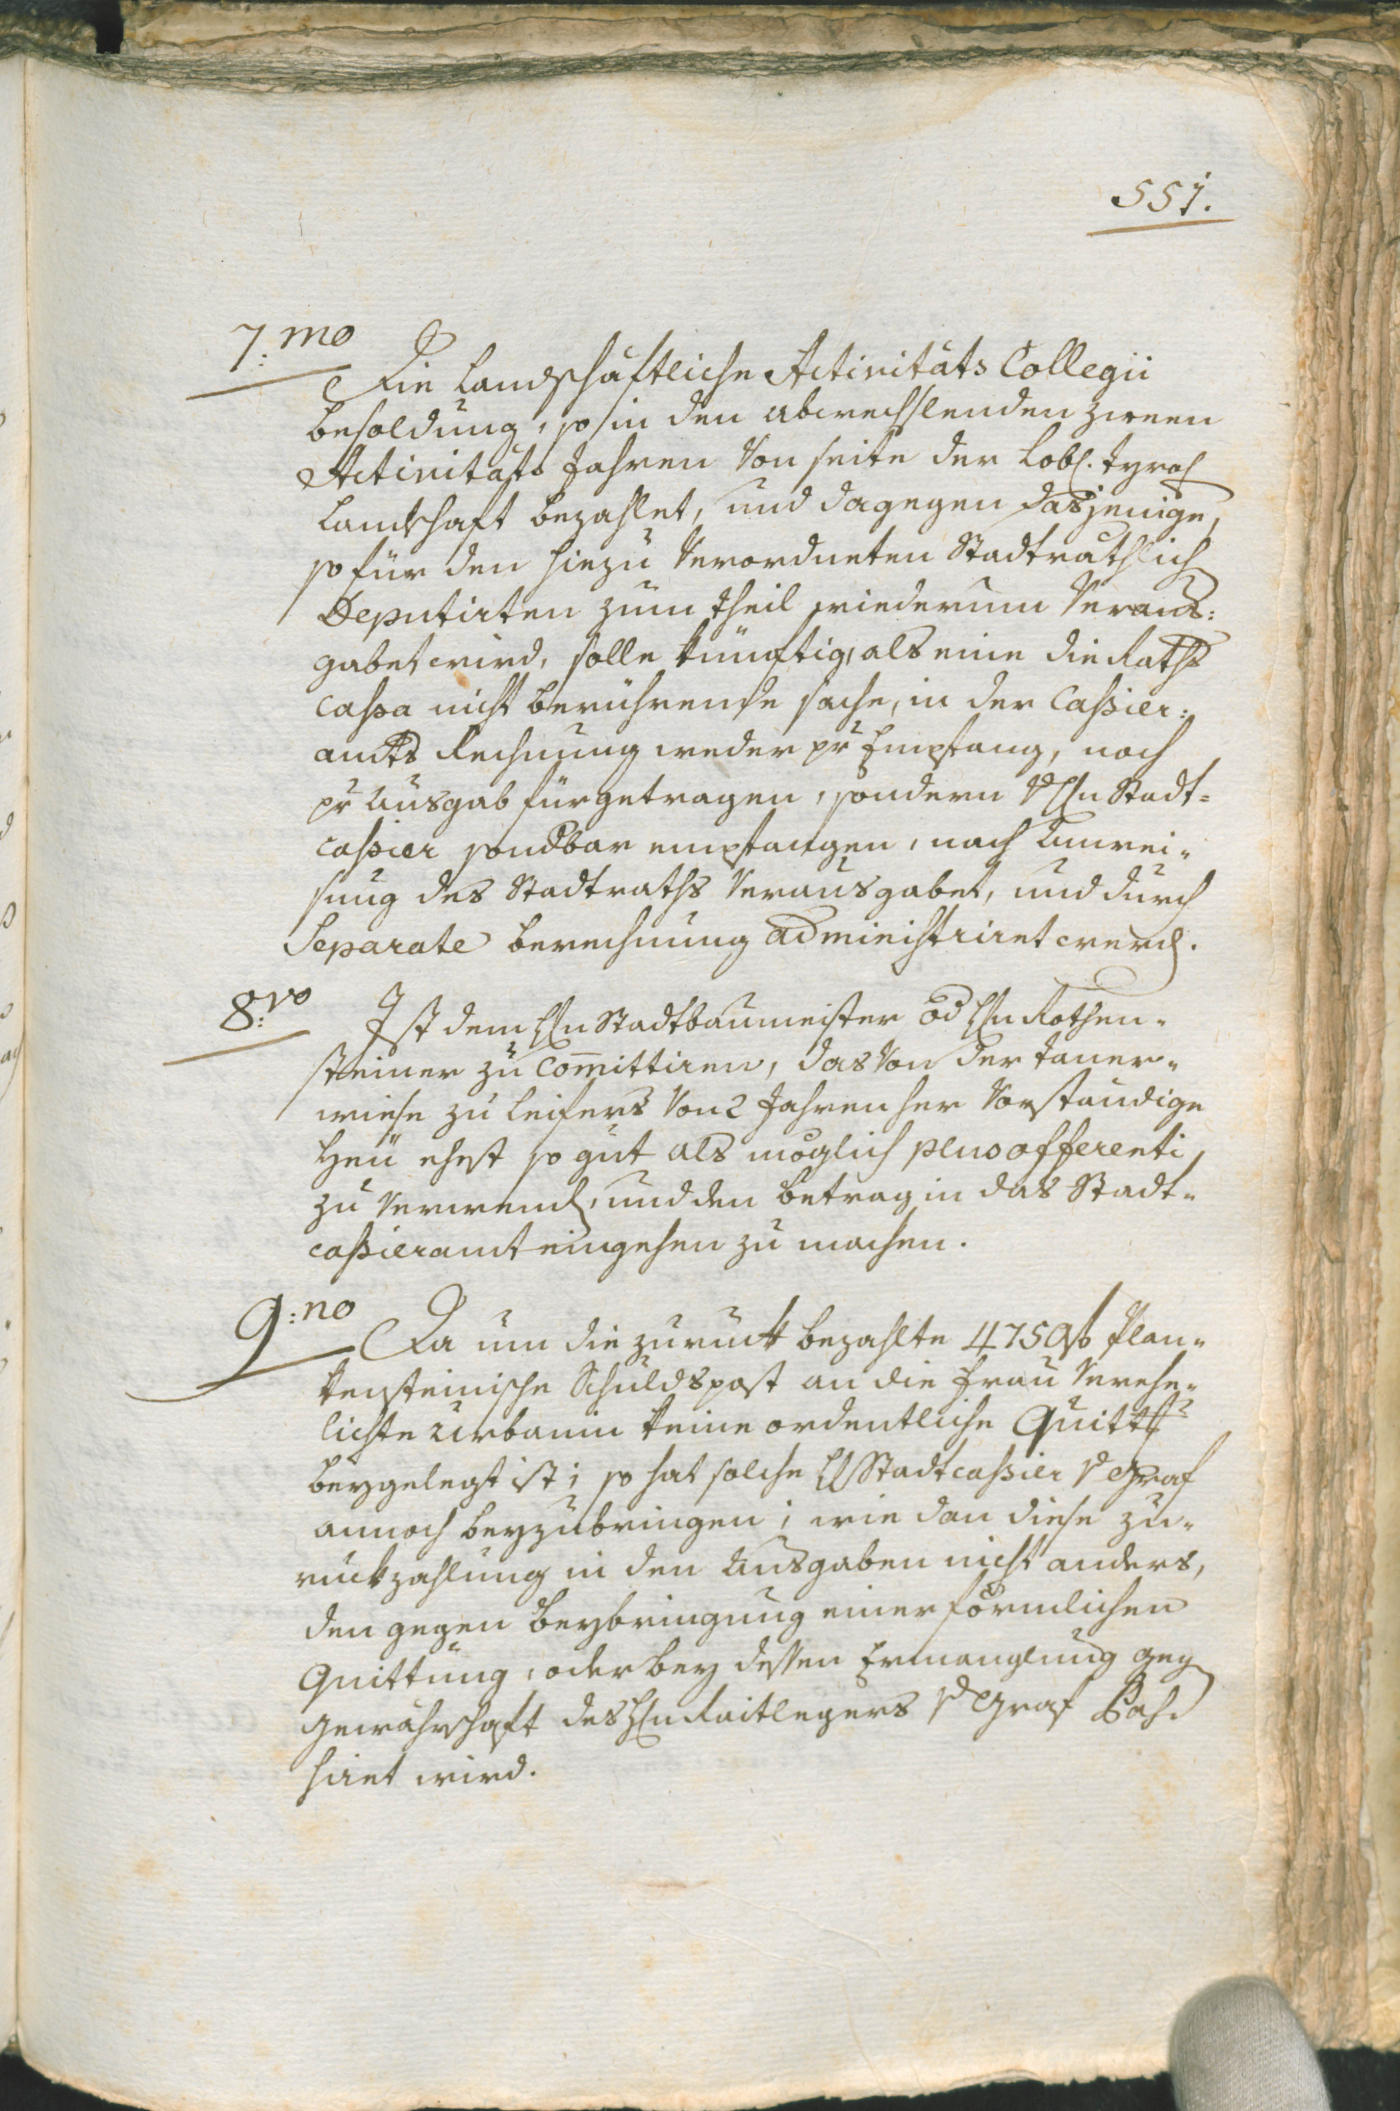 551.
7:mo
Die Landschäftliche Activitäts Collegii
besoldung, so in den abwechslenden zween
Activitäts Jahren von seite der Lobl. tyrol
Landschaft bezahlet, und dagegen dasjenige,
so für den hiezu Verordneten Stadträthlich
Deputirten zum theil wiederum Veraus:
gabet wird, solle künftig, als eine die Raths
Cassa nicht berührende sache, in der Cassier:
amts Rechnung weder pr Empfang, noch
pr Ausgab fürgetragen, sondern Hn Stadt=
cassier sondbar empfangen, nach Anwei=
sung des Stadtraths Verausgabet, und durch
Separate berechnung administriret werd.
8:vo
Ist dem Hn Stadtbaumeister Hn Rothen=
steiner zu Committiren, das von der taner=
wiese zu Leifers von 2 Jahren her Vorständige
Heu ehest so gut als möglich plus offerenti
zu Verwend, und den betrag in das Stadt=
cassieramt eingehen zu machen.
9:no
Da um die zuruck bezahlte 4750 f Plan=
kensteinische Schuldspost an die Frau Verehe=
lichte Urbanin keine ordentliche Quitt
beygelegt ist; so hat solche H Stadtcassier v Graf
annoch beyzubringen; wie dan diese zu=
ruckzahlung in den Ausgaben nicht anders,
den gegen beybringung einer förmlichen
Quittung, oder bey dessen Ermanglung geg
gewährschaft des Hn Raitlegers v Graf Pas=
siret wird.